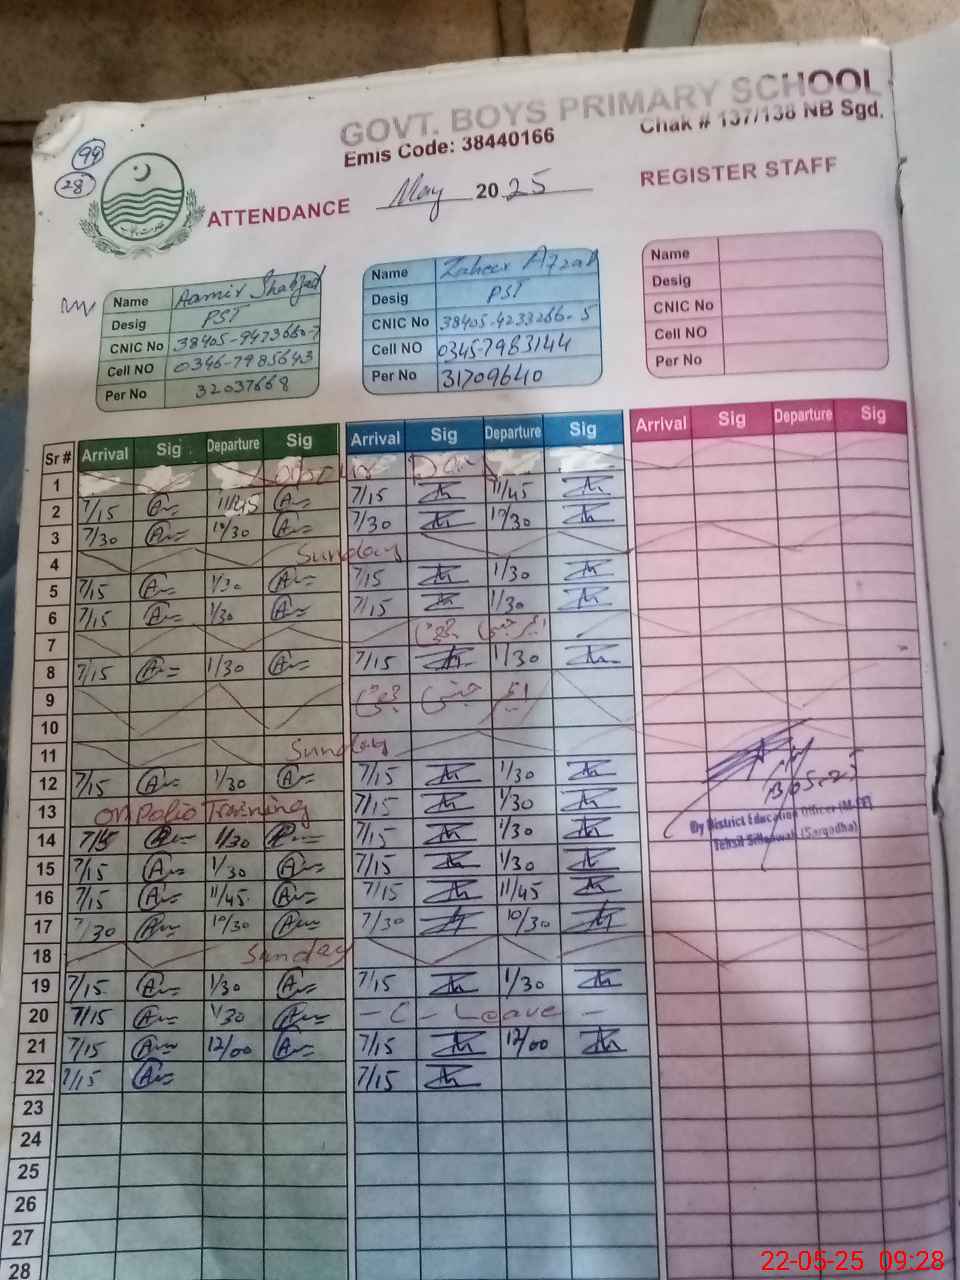 GOVT. BOYS PRIMARY SCHOOL
Emis Code: 38440166 Chak # 137/138 NB Sgd.
94
28
ATTENDANCE May 2025 REGISTER STAFF
Name Aamir Shahzad
Desig PST
CNIC No 38405-9473660-7
Cell NO 0346-7985643
Per No 32037668
Name Zaheer Afzal
Desig PST
CNIC No 38405-4233266-5
Cell NO 0345-7963144
Per No 31709640
Name
Desig
CNIC No
Cell NO
Per No
Sr # Arrival Sig Departure Sig Arrival Sig Departure Sig Arrival Sig Departure Sig
1 Labour Day
2 7/15 11/45 7/15 11/45
3 7/30 10/30 7/30 10/30
4 Sunday
5 7/15 1/30 7/15 1/30
6 7/15 1/30 7/15 1/30
7
8 7/15 1/30 7/15 1/30
9
10
11 Sunday
12 7/15 1/30 7/15 1/30
13 on Polio Training 7/15 1/30
14 7/15 1/30 7/15 1/30
15 7/15 1/30 7/15 1/30
16 7/15 11/45 7/15 11/45
17 7/30 10/30 7/30 10/30
18 Sunday
19 7/15 1/30 7/15 1/30
20 7/15 1/30 - C - Leave -
21 7/15 12/00 7/15 12/00
22 7/15 7/15
23
24
25
26
27
28
Dy District Education Officer (M-EE)
Tehsil Sillanwali (Sargodha)
22-05-25 09:28